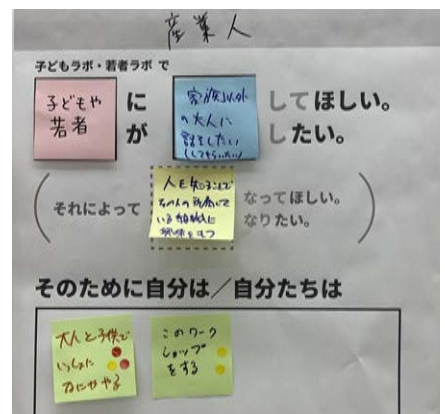 産業人
子どもラボ・若者ラボ で
子どもや
若者
に
が
家族以外
の大人に
話をしたい
(してもらいたい)
してほしい。
したい。
それによって
人を知ることで
その人の所属して
いる組織に
興味をもつ
なってほしい。
なりたい。
そのために自分は／自分たちは
大人と子供で
いっしょに
なにかやる
このワーク
ショップ
をする